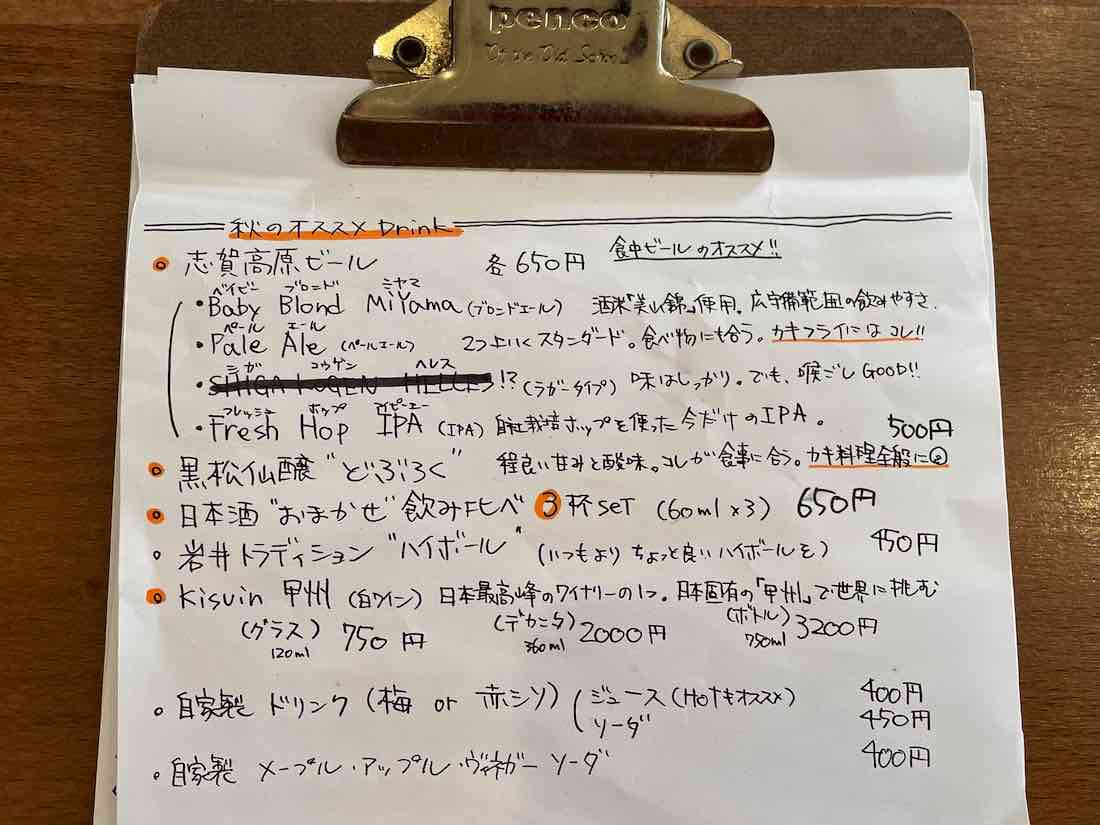 penco
秋のオススメ Drink
志賀高原ビール 各650円 食中ビールのオススメ!!
ベイビー ブロンド ミヤマ
・Baby Blond MiYama (ブロンドエール) 酒米「美山錦」使用。広守備範囲の飲みやすさ。
ペール エール
・Pale Ale (ペールエール) 2つ上いくスタンダード。食べ物にも合う。カキフライにはコレ!!
シガ コウゲン ヘレス
・SHIGA KOGEN HELLES!? (ラガータイプ) 味はしっかり。でも、喉ごしGOOD!!
フレッシュ ホップ アイピーエー
・Fresh Hop IPA (IPA) 自社栽培ホップを使った今だけのIPA。
黒松仙醸 "どぶろく" 程良い甘みと酸味。コレが食事に合う。カキ料理全般に◎ 500円
日本酒 "おまかせ" 飲み比べ 3杯SET (60ml×3) 650円
岩井トラディション "ハイボール" (いつもより ちょっと良い ハイボールを) 450円
Kisvin 甲州 (白ワイン) 日本最高峰のワイナリーの1つ。日本固有の「甲州」で世界に挑む
(グラス) 120ml 750円 (デカンタ) 360ml 2000円 (ボトル) 750ml 3200円
自家製 ドリンク (梅 or 赤シソ) ジュース (Hotもオススメ) 400円
ソーダ 450円
自家製 メープル・アップル・ヴィネガー ソーダ 400円